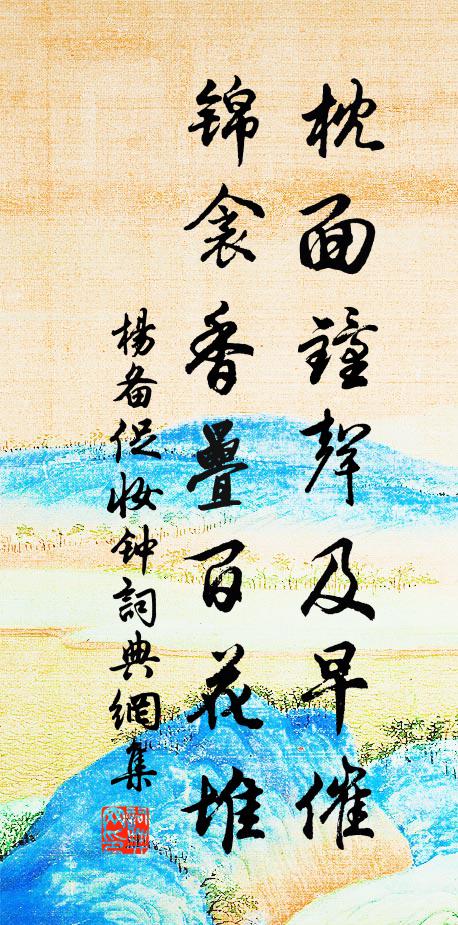 枕面鐘聲及早催
錦衾香疊百花堆
楊备促妆钟詞典網集